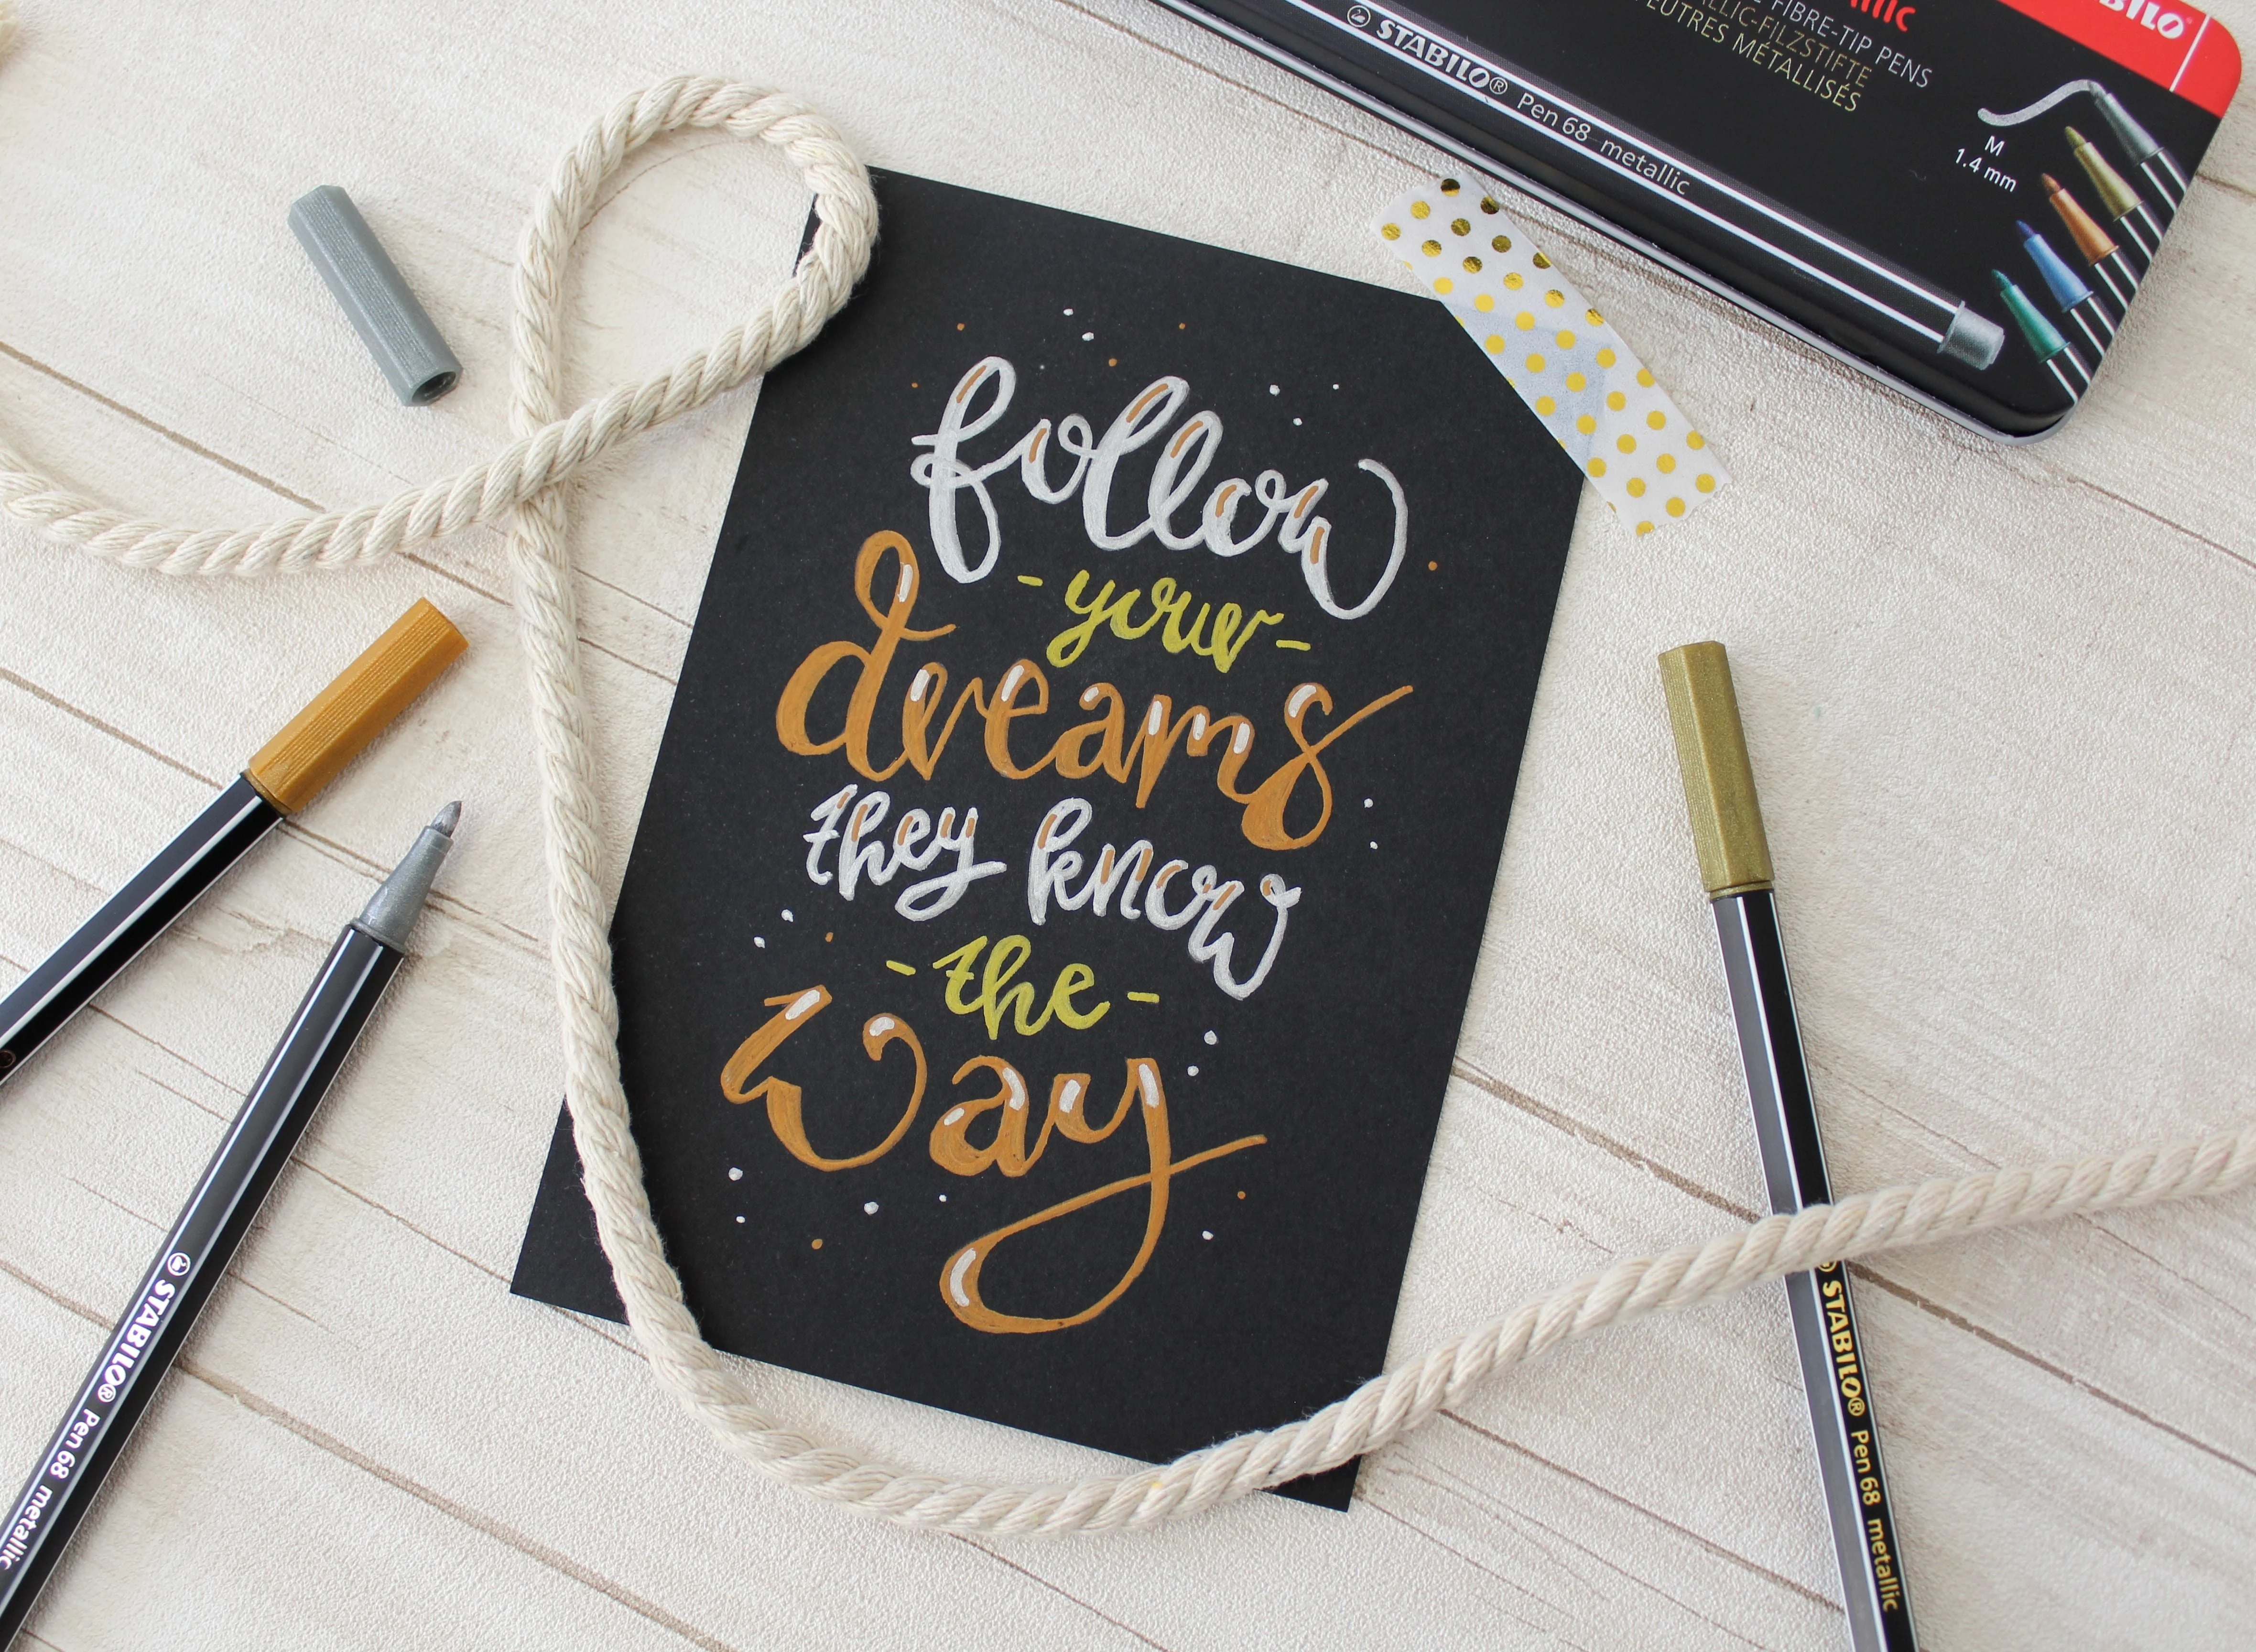 STABILO®
Pen 68 metallic
FIBRE-TIP PENS
METALLISÉS
M
1.4 mm
follow
- your -
dreams
they know
- the -
way
STABILO® Pen 68 metallic
STABILO® Pen 68 metallic